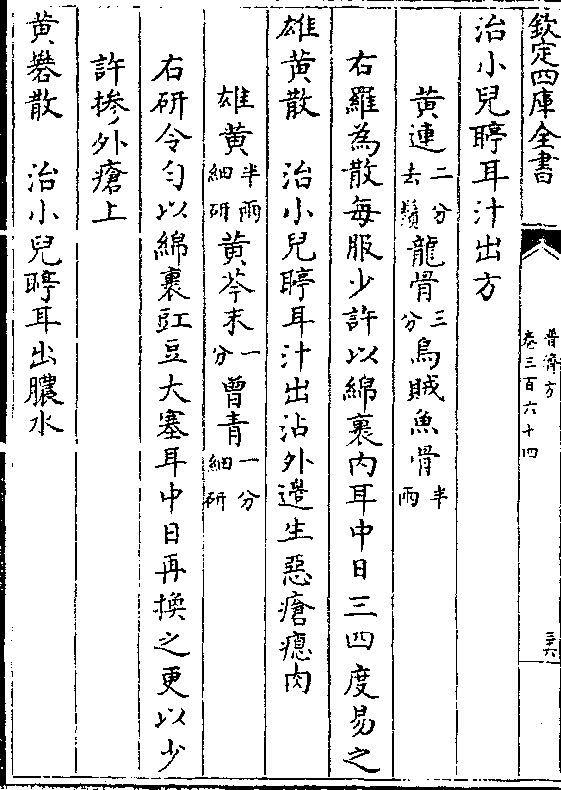 欽定四庫全書
普濟方
卷三百六十四
三六
治小兒聤耳汁出方
黄連二分去鬚龍骨三分烏賊魚骨半兩
右羅為散每服少許以綿裹内耳中日三四度易之
雄黄散　治小兒聤耳汁出沾外邉生惡瘡瘜肉
雄黄半兩細研黄芩末一分曾青一分細研
右研令匀以綿裹豇豆大塞耳中日再換之更以少
許摻外瘡上
黄礬散　治小兒聤耳出膿水